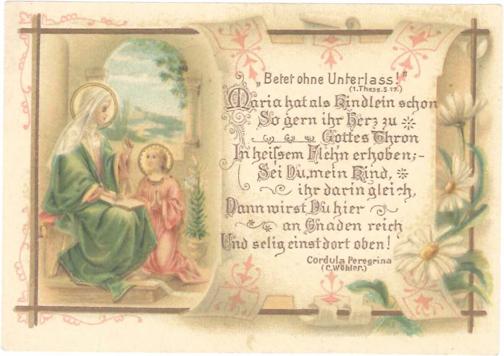 „Betet ohne Unterlass!“
(1. Thess. 5 17.)
Maria hat als Kindlein schon
So gern ihr Herz zu
Gottes Thron
In heissem Flehn erhoben;-
Sei Du, mein Kind,
ihr darin gleich,
Dann wirst Du hier
an Gnaden reich
Und selig einst dort oben!
Cordula Peregrina
(C. Wöhler.)